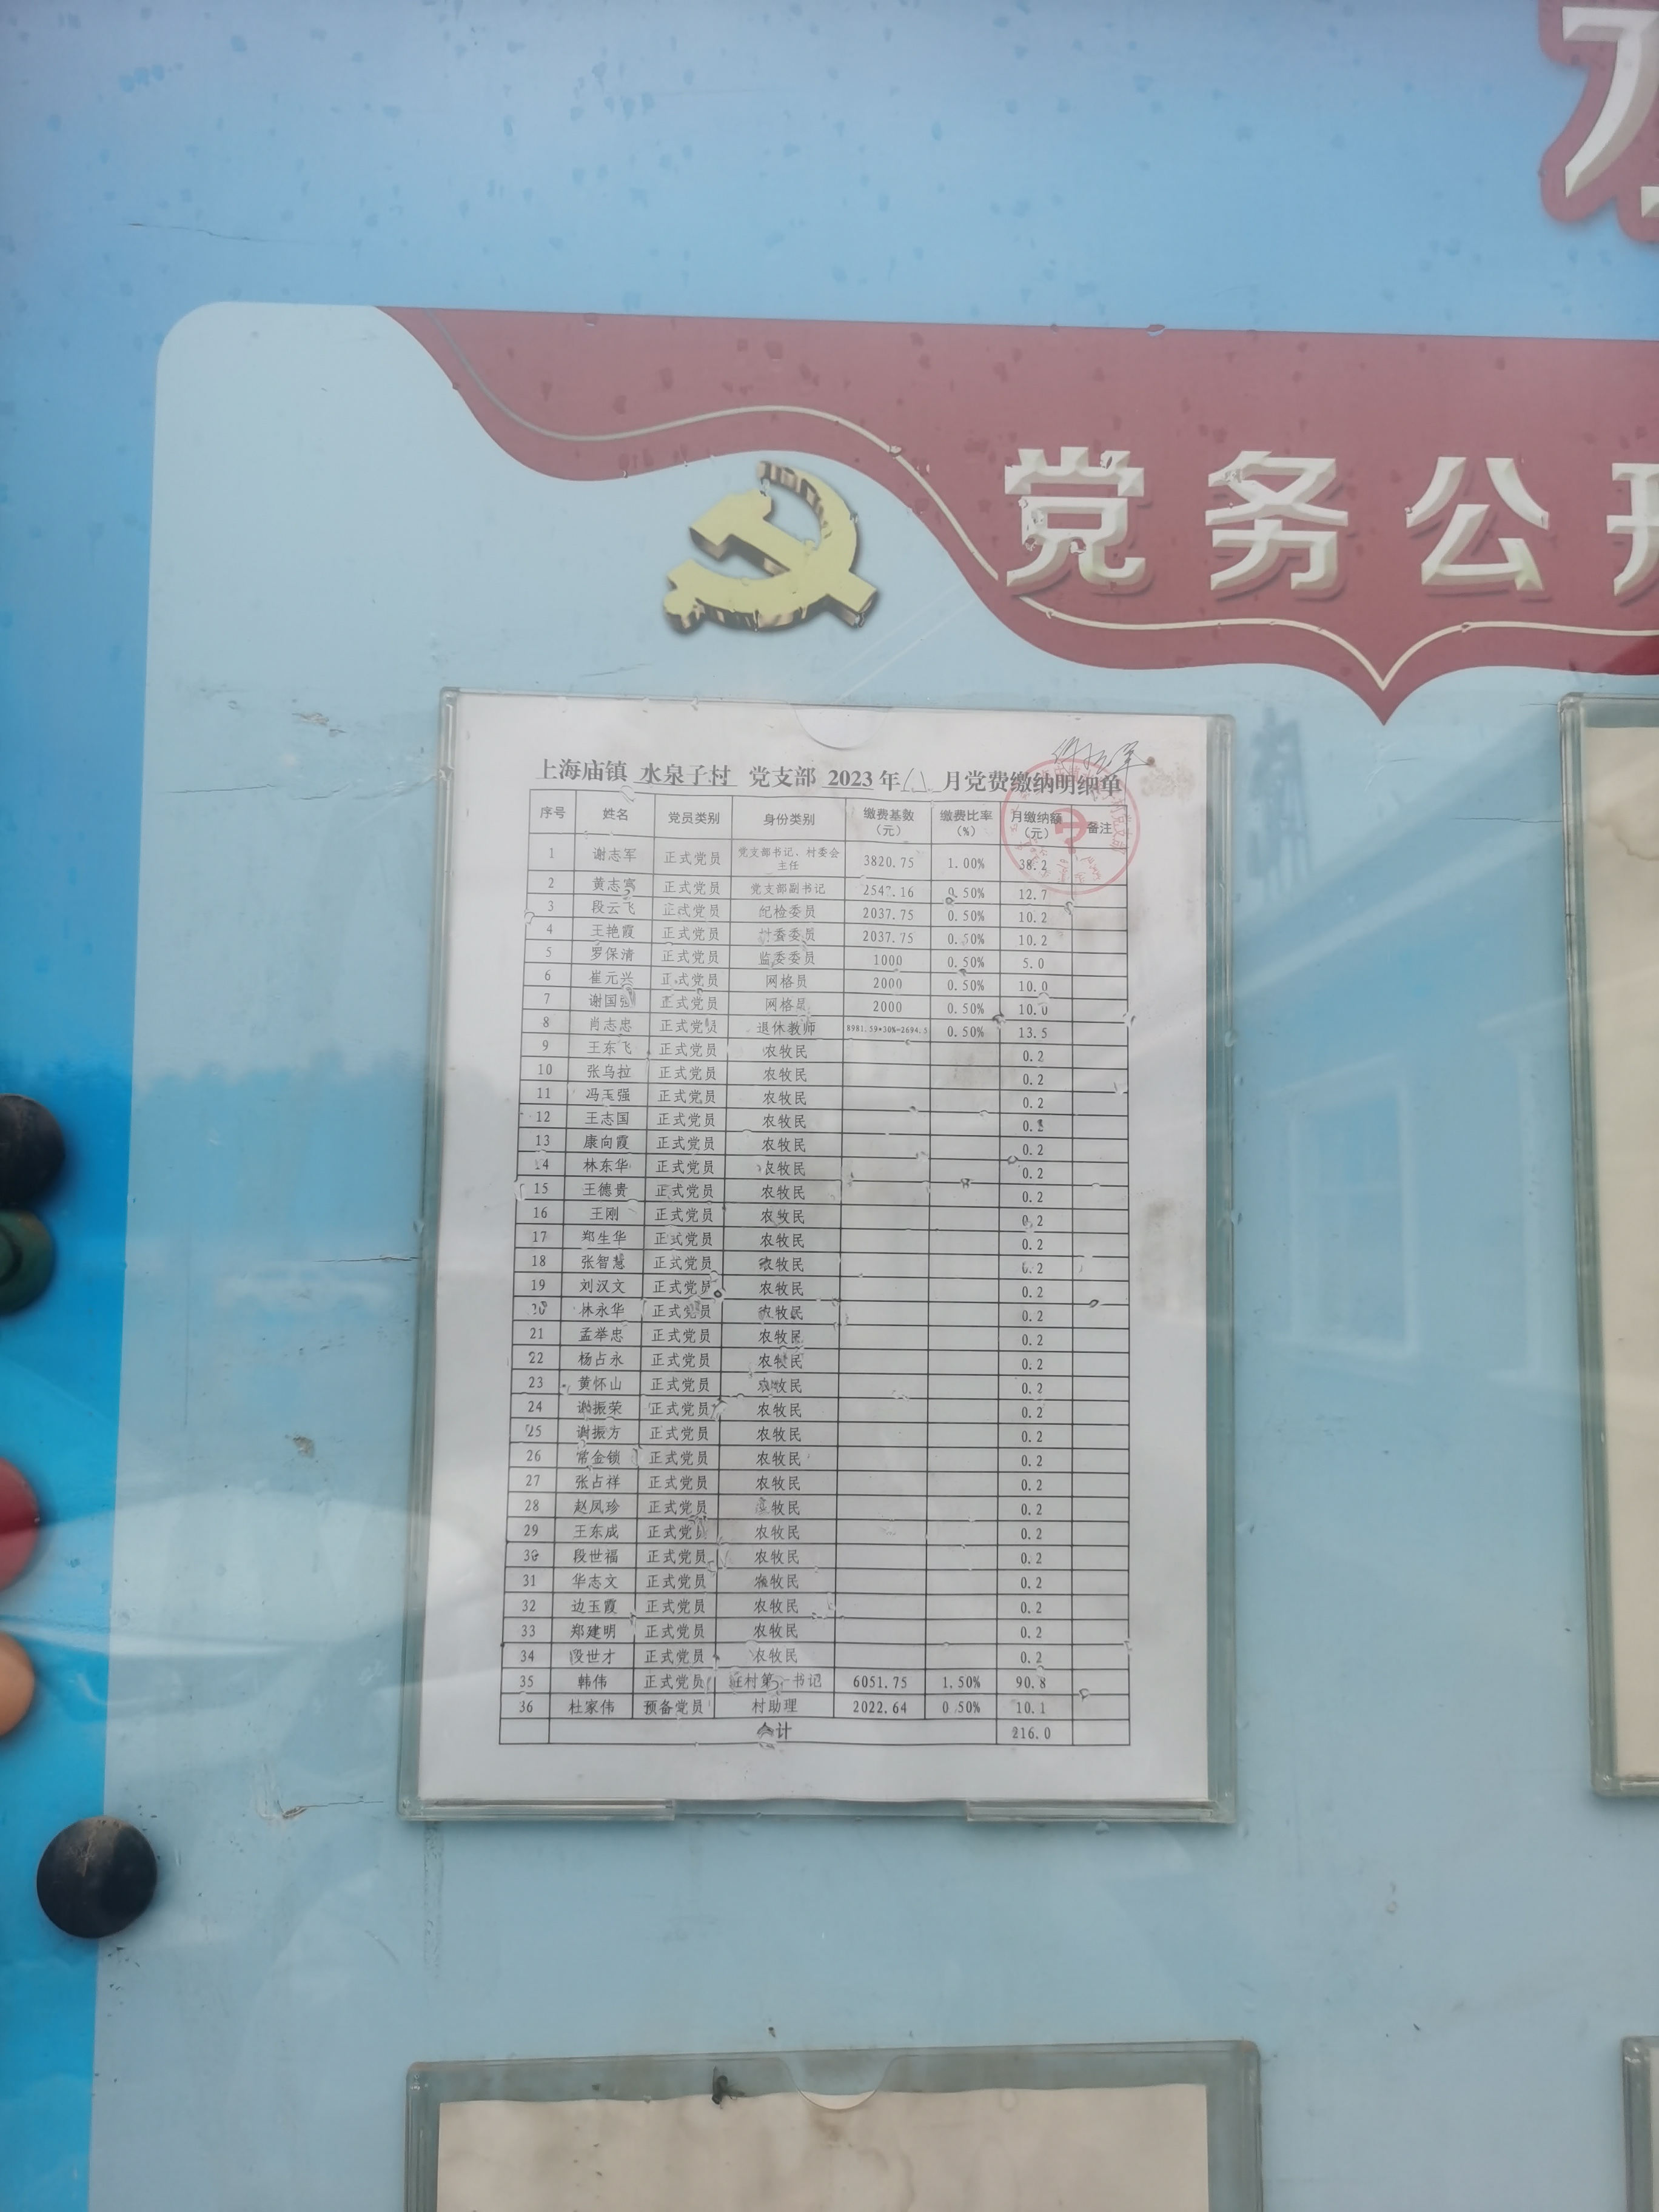 党务公开
上海庙镇 水泉子村 党支部 2023年 月党费缴纳明细单
序号 姓名 党员类别 身份类别 缴费基数（元） 缴费比率（%） 月缴纳额（元） 备注
1 谢志军 正式党员 党支部书记、村委会主任 3820.75 1.00% 38.2
2 黄志富 正式党员 党支部副书记 2547.16 0.50% 12.7
3 段云飞 正式党员 纪检委员 2037.75 0.50% 10.2
4 王艳霞 正式党员 村委委员 2037.75 0.50% 10.2
5 罗保清 正式党员 监委委员 1000 0.50% 5.0
6 崔元兴 正式党员 网格员 2000 0.50% 10.0
7 谢国强 正式党员 网格员 2000 0.50% 10.0
8 肖志忠 正式党员 退休教师 8981.59*30%=2694.5 0.50% 13.5
9 王东飞 正式党员 农牧民 0.2
10 张乌拉 正式党员 农牧民 0.2
11 冯玉强 正式党员 农牧民 0.2
12 王志国 正式党员 农牧民 0.2
13 康向霞 正式党员 农牧民 0.2
14 林东华 正式党员 农牧民 0.2
15 王德贵 正式党员 农牧民 0.2
16 王刚 正式党员 农牧民 0.2
17 郑生华 正式党员 农牧民 0.2
18 张智慧 正式党员 农牧民 0.2
19 刘汉文 正式党员 农牧民 0.2
20 林永华 正式党员 农牧民 0.2
21 孟举忠 正式党员 农牧民 0.2
22 杨占永 正式党员 农牧民 0.2
23 黄怀山 正式党员 农牧民 0.2
24 谢振荣 正式党员 农牧民 0.2
25 谢振方 正式党员 农牧民 0.2
26 常金锁 正式党员 农牧民 0.2
27 张占祥 正式党员 农牧民 0.2
28 赵凤珍 正式党员 农牧民 0.2
29 王东成 正式党员 农牧民 0.2
30 段世福 正式党员 农牧民 0.2
31 华志文 正式党员 农牧民 0.2
32 边玉霞 正式党员 农牧民 0.2
33 郑建明 正式党员 农牧民 0.2
34 段世才 正式党员 农牧民 0.2
35 韩伟 正式党员 驻村第一书记 6051.75 1.50% 90.8
36 杜家伟 预备党员 村助理 2022.64 0.50% 10.1
合计 216.0